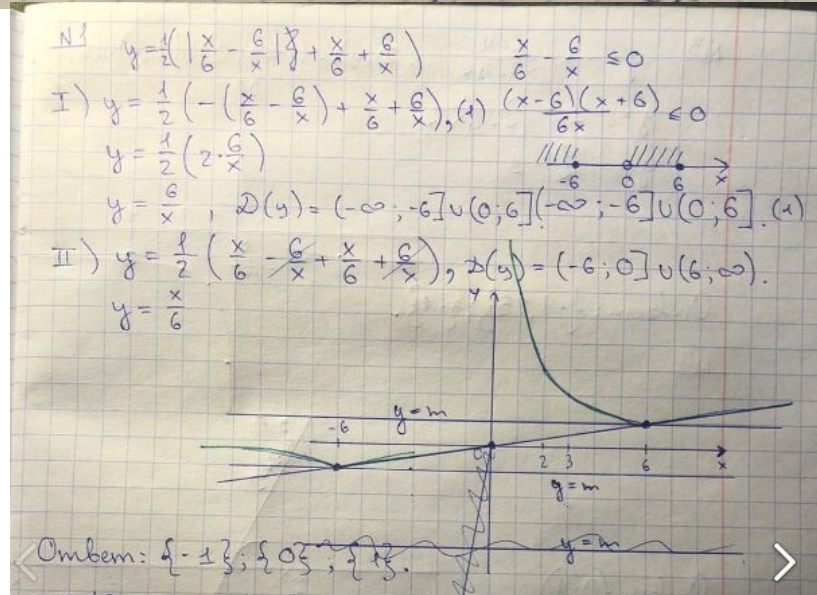 N1 y = 1/2(|x/6 - 6/x| + x/6 + 6/x) x/6 - 6/x ≤ 0
I) y = 1/2(-(x/6 - 6/x) + x/6 + 6/x), (1) (x-6)(x+6)/6x ≤ 0
y = 1/2(2·6/x)
-6 0 6 x
y = 6/x, D(y) = (-∞; -6]∪(0; 6] (-∞; -6]∪(0; 6]. (1)
II) y = 1/2(x/6 - 6/x + x/6 + 6/x), D(y) = (-6; 0]∪(6; ∞).
y = x/6
y
y = m
-6
0 2 3 6 x
y = m
y = m
Ответ: {-1}; {0}; {1}.